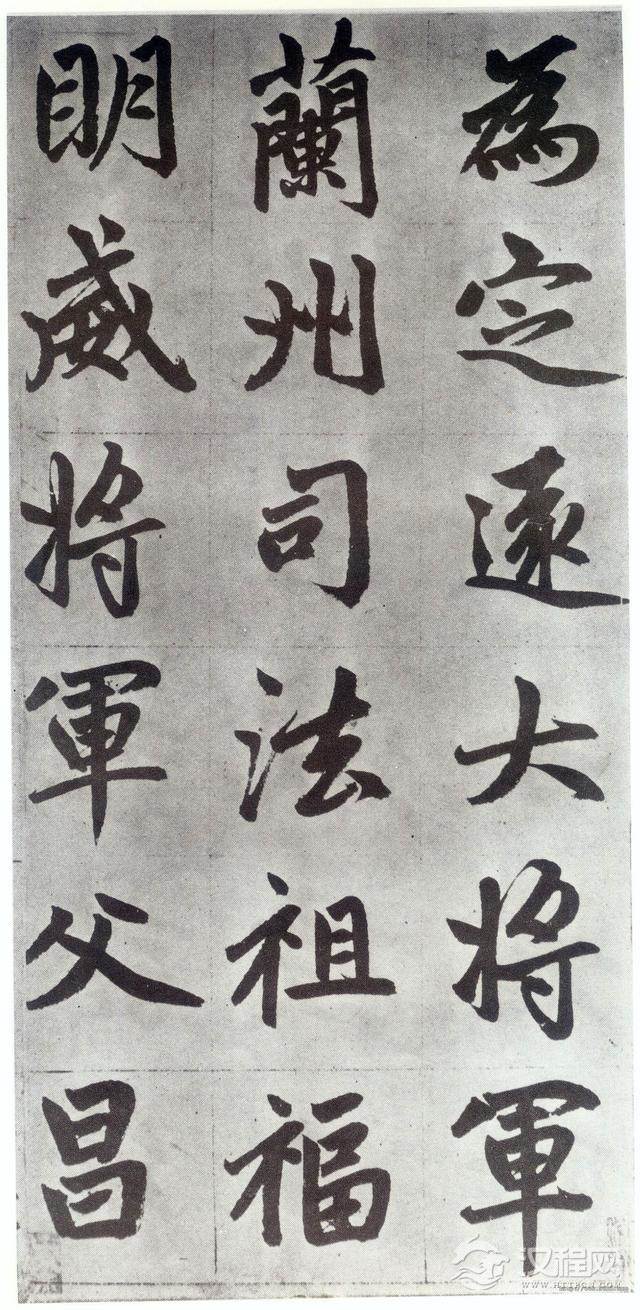 為定遠大將軍
蘭州司法祖福
明威將軍父昌
汉程网
WWW.HTTPCN.COM